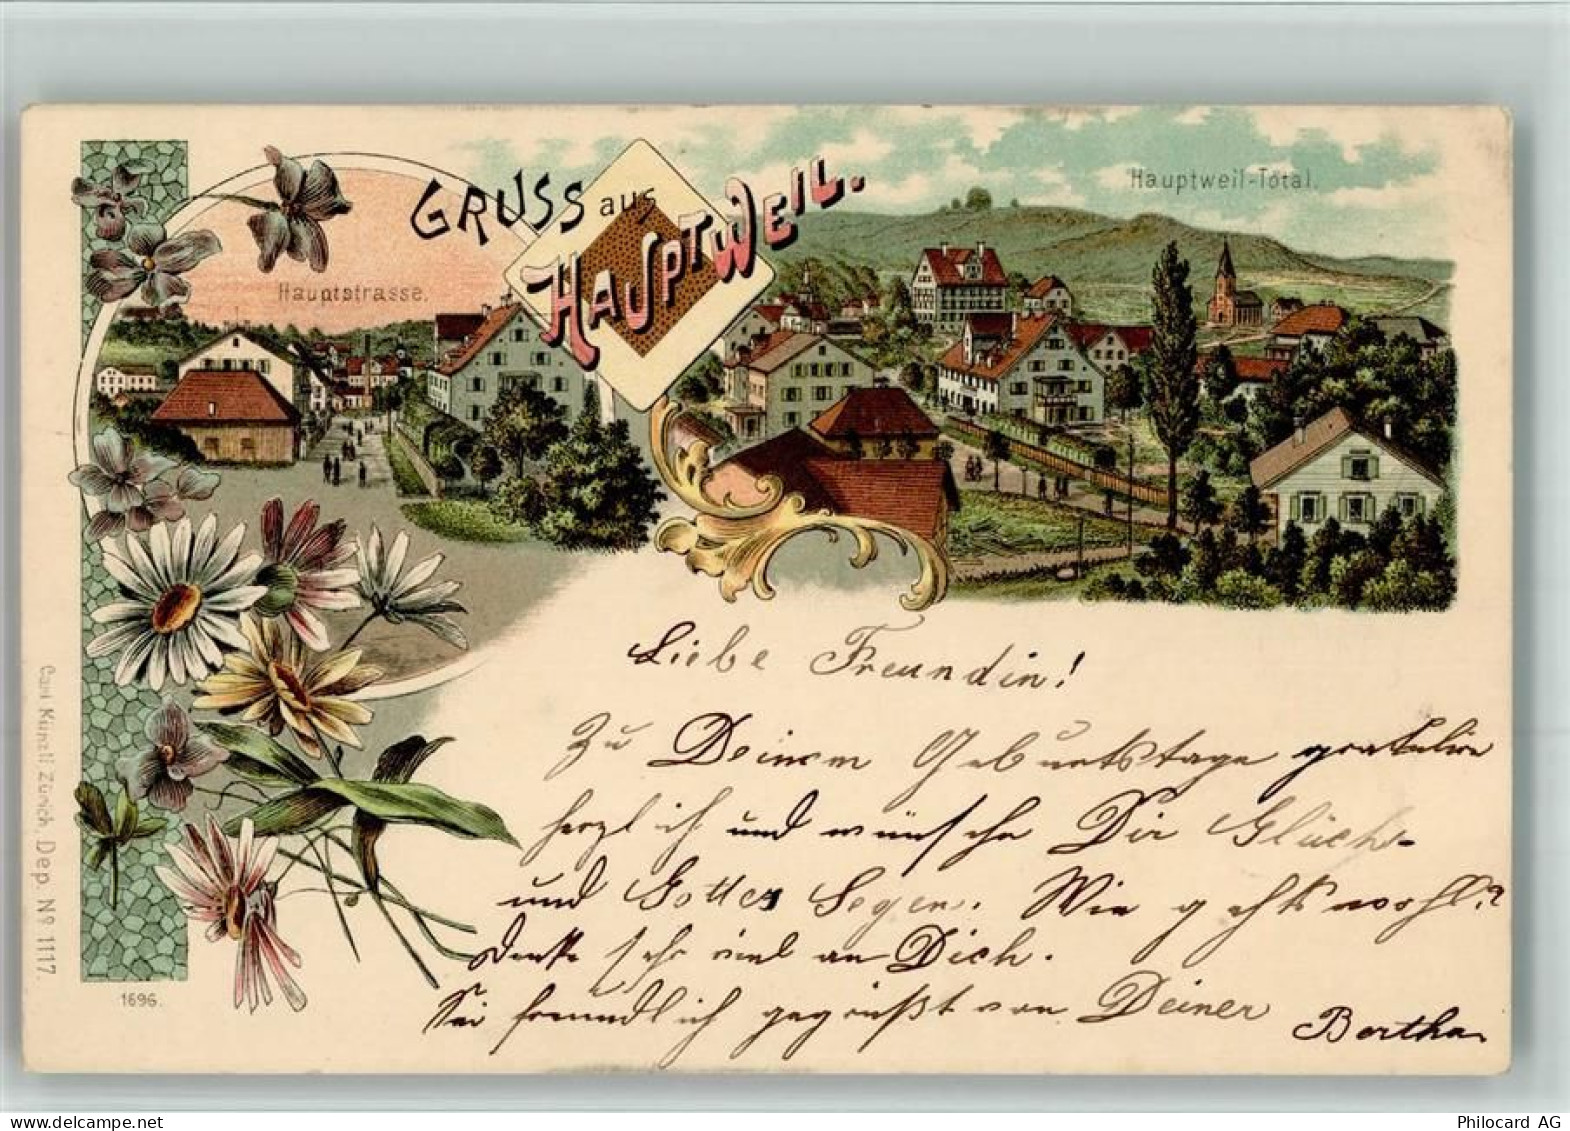 GRUSS aus
HAUPTWEIL.
Hauptstrasse.
Hauptweil-Total.
Liebe Freundin!
Zu Deinem Geburtstage gratulire
herzlich und wünsche Dir Glück-
und Gottes Segen. Wie gehts wohl?
Denke sehr viel an Dich.
Sei freundlich gegrüßt von Deiner
Bertha
Carl Künzli Zürich, Dep. Nº 1117.
1696.
Philocard AG